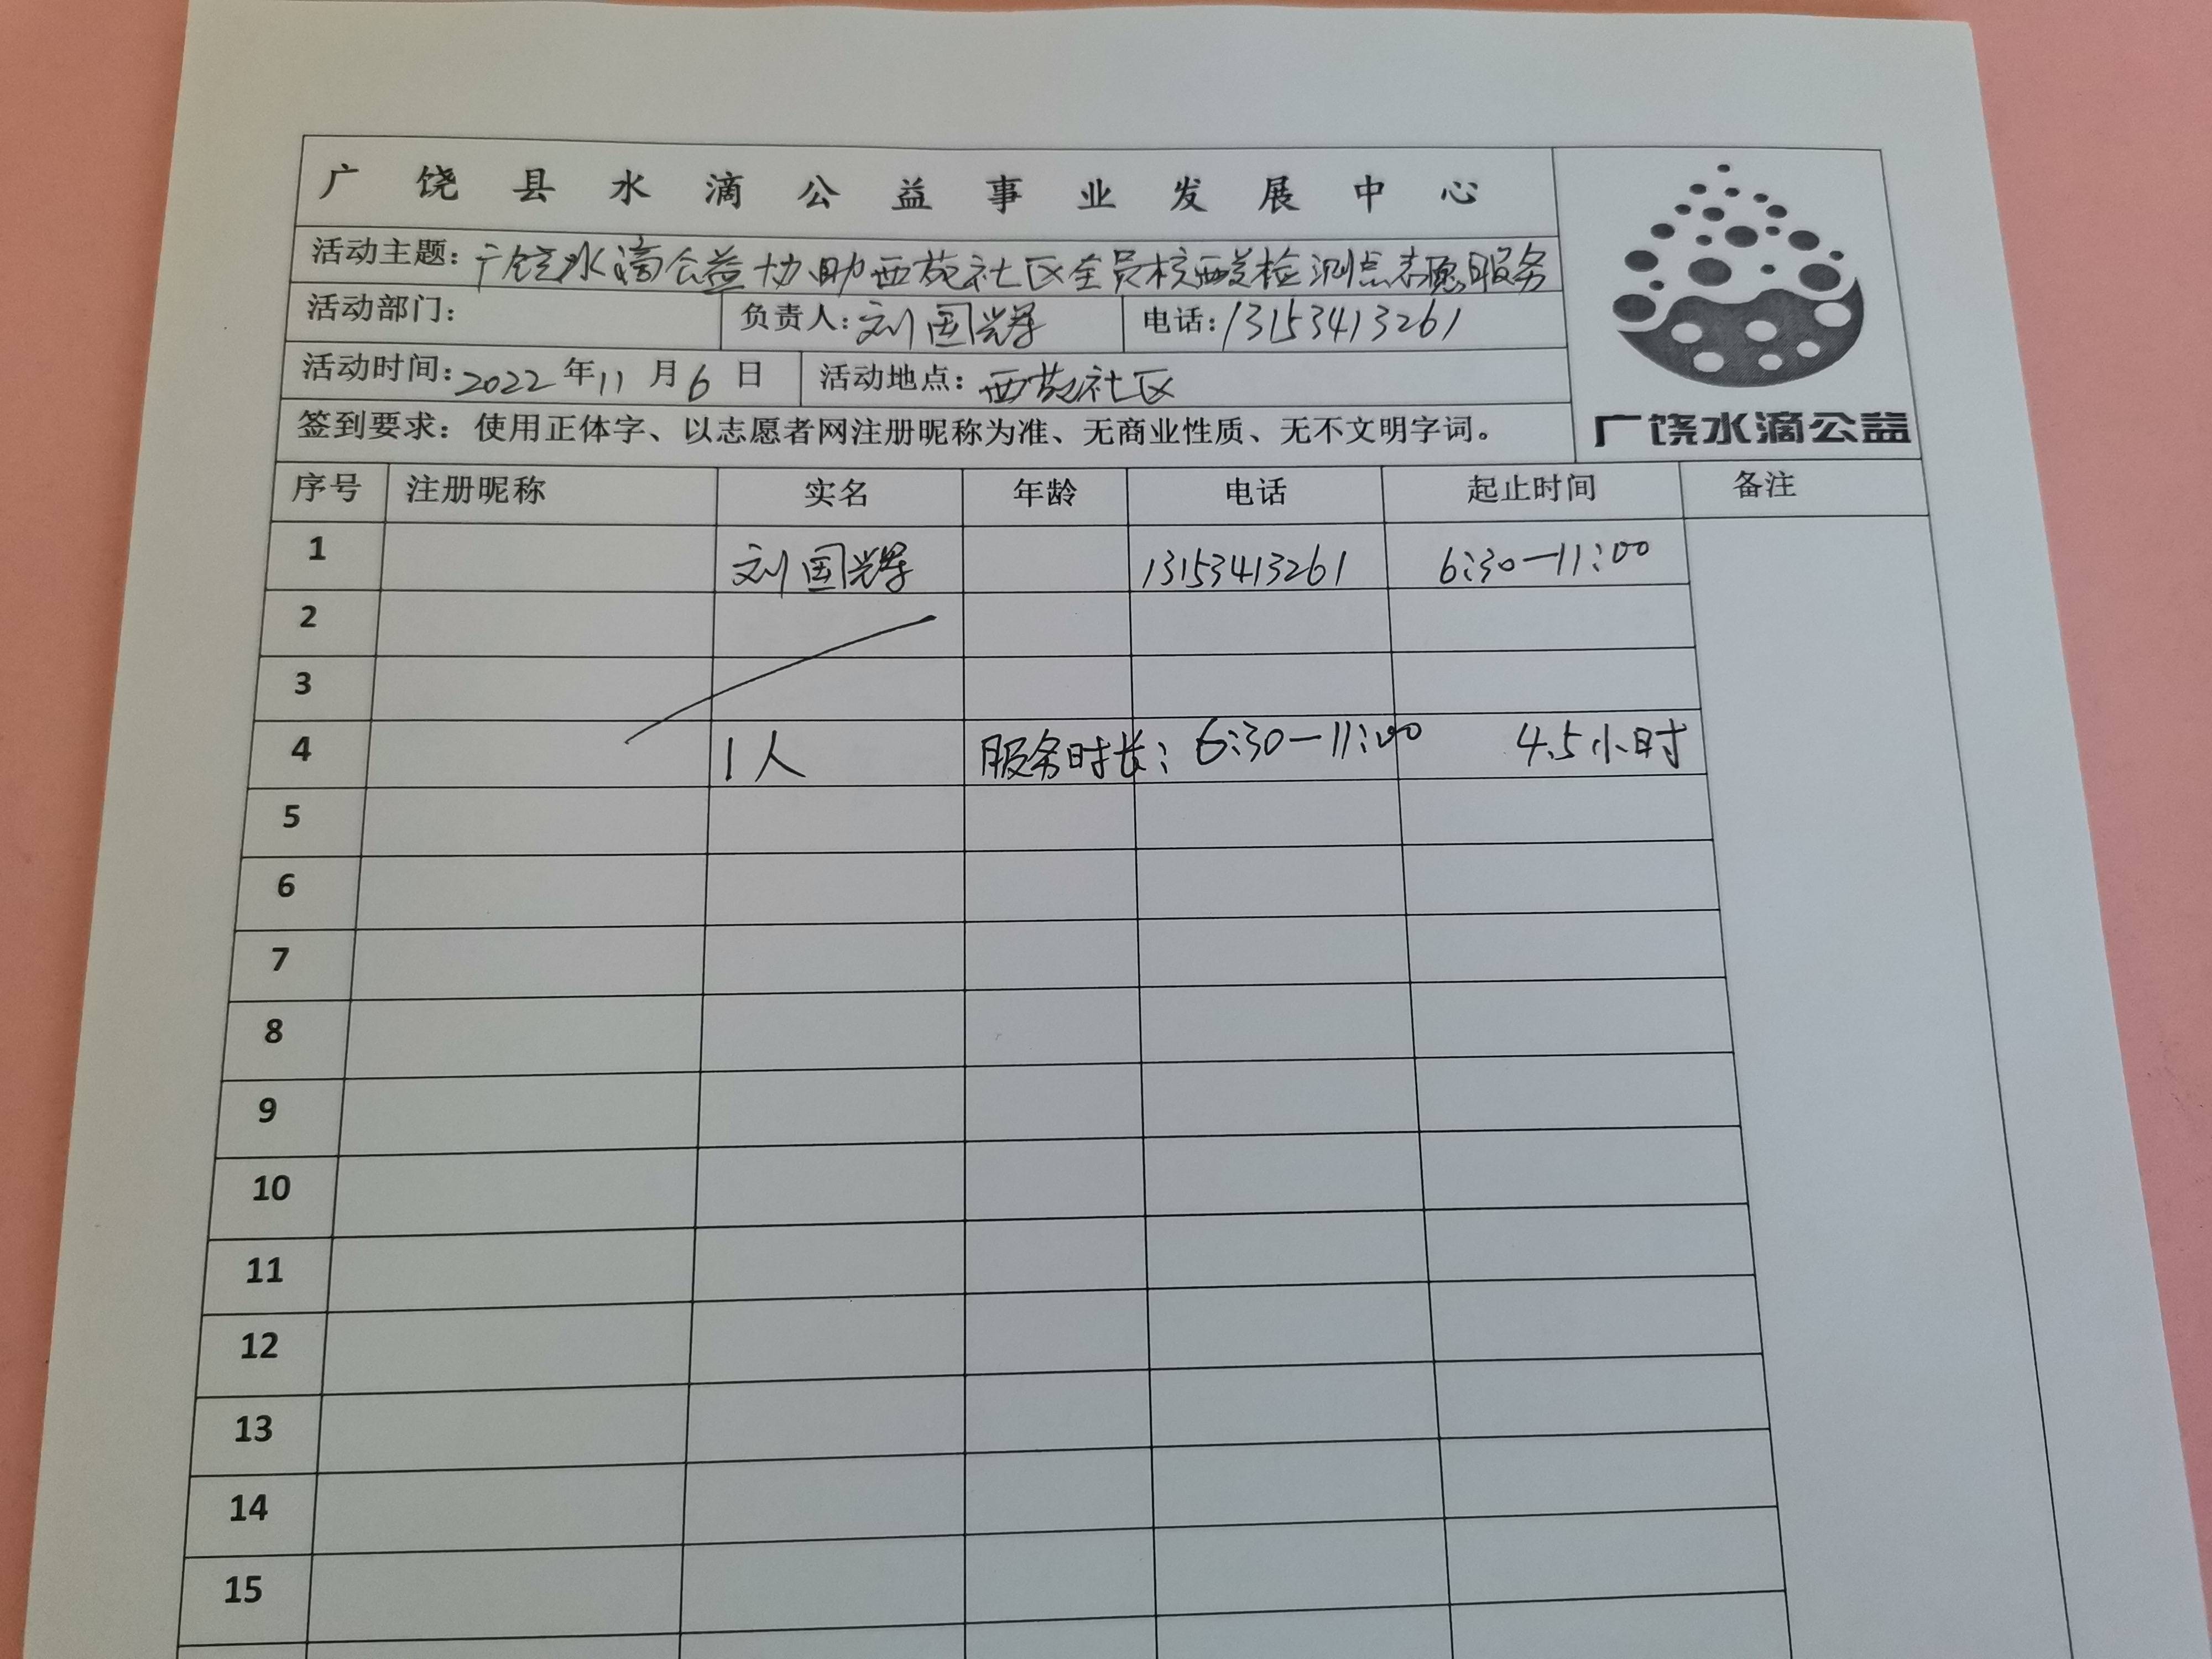 广饶县水滴公益事业发展中心
活动主题：广饶水滴公益协助西苑社区全员核酸检测点志愿服务
活动部门： 负责人：刘国辉 电话：13153413261
活动时间：2022年11月6日 活动地点：西苑社区
签到要求：使用正体字、以志愿者网注册昵称为准、无商业性质、无不文明字词。
广饶水滴公益
序号 注册昵称 实名 年龄 电话 起止时间 备注
1 刘国辉 13153413261 6:30—11:00
2
3
4 1人 服务时长：6:30—11:00 4.5小时
5
6
7
8
9
10
11
12
13
14
15